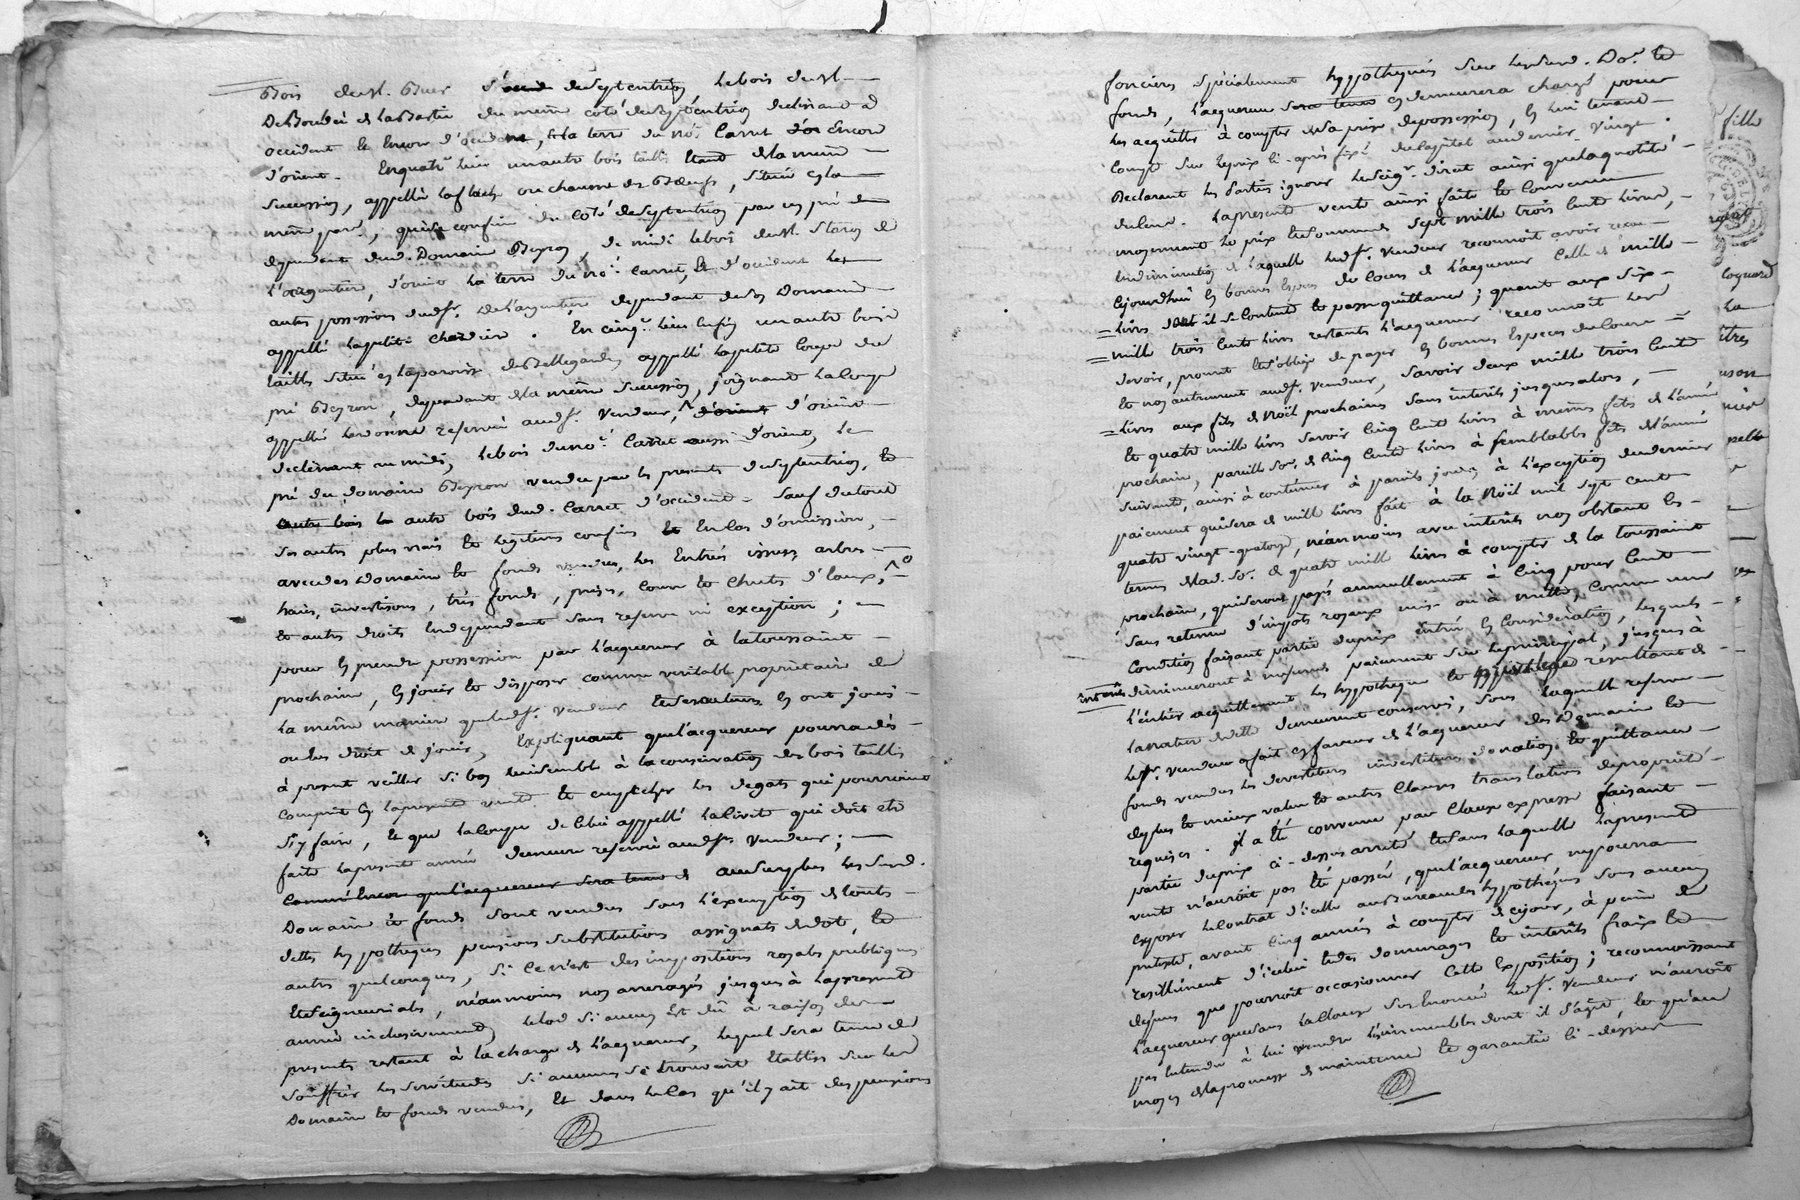 Bois de M. Buer de Septentrion, le bois de M.
De Bourdieu de la Bastie du même coté de Septentrion declinant à
occident et encore d'occident, et la terre du no.e Carret encore
d'orient. En quatr.e lieu un autre bois taillis étant de la même
succession, appellé ou chaume des Bœufs, situé
même par.se, qui se confine du coté de Septentrion par un pré
dependant dud. Domaine Beyron, de midi le bois de M. de
L'argentière, d'orient la terre du no.e Carret, Et d'occident les
autres possessions dud.sr. De L'argentière, dependant de son Domaine
appellé la petite. En cinq.e lieu enfin un autre bois
taillis situé en la paroisse de Bellegarde, appellé la petite Coupe du
pré Beyron, dependant de la même succession, joignant la Coupe
appellée reservée aud.sr. Vendeur, d'orient
declinant au midi, le bois du no.e Carret aussi d'orient, le
pré du domaine Beyron vendu par les presentes de Septentrion, et
autre bois dud. Carret d'occident. Sauf du tout
ses autres plus vrais et legitimes confins et En cas d'omission,
avec des Domaine et fonds vendus, les Entrées issues arbres
haies, investisons, très fonds, prises, Cours et Chutes d'Eaux,
et autres droits En dependant sans reserve ni exception;
pour En prendre possession par l'acquereur à la toussaint
prochaine, En jouir et disposer comme veritable proprietaire de
la même maniere que led.sr. vendeur et ses auteurs En ont joui
ou eu droit de jouir, Expliquant que l'acquereur pourra dès
à present veiller si bon lui semble à la conservation des bois taillis
compris En la presente vente et empêcher les degats qui pourroient
s'y faire, et que la Coupe de celui appellé qui doit etre
faite la presente année demeure reservée aud.sr. Vendeur;
Comme Encore que l'acquereur sera tenu de au Surplus lesd.
Domaine et fonds sont vendus sous l'exemption de toutes
dettes hypotheques pensions substitutions assignats de dot, et
autres quelconques, si ce n'est des impositions royales publiques
Et seigneuriales, néanmoins non arreragés jusques à la presente
année inclusivement, le lod si aucun est dû à raison des
presentes restant à la charge de l'acquereur, lequel sera tenu de
souffrir les servitudes si aucunes se trouvent Etablies sur les
Domaine et fonds vendus, Et dans le cas qu'il y ait des pensions
foncieres spécialement hypothequées sur lesd. Do.e et
fonds, l'acquereur sera tenu en demeurera chargé pour
les acquitter à compter de la prise de possession, En lui tenant
compte sur le prix ci-après fixé du capital au denier vingt.
Declarant les parties ignorer le Seig.r direct ainsi que la quotité
du Cens. La presente vente ainsi faite et Convenue
moyennant le prix et somme de sept mille trois Cent livres,
En diminution de laquelle led.sr. Vendeur reconnoit avoir reçu
Cejourdhui En bonnes Especes du Cours de l'acquereur Celle de mille
livres dont il se Contente et passe quittance; quant aux six
mille trois cents livres restants l'acquereur reconnoit les
devoir, promet et s'oblige de payer En bonnes Especes du Cours
et non autrement aud.sr. Vendeur, savoir deux mille trois Cents
livres aux fêtes de Noël prochaines sans interêts jusques alors,
Et quatre mille livres savoir cinq cents livres à mêmes fêtes de l'année
prochaine, pareille So.e de cinq cents livres à semblables fêtes de l'année
suivante, ainsi à continuer à pareils jours, à l'exception du dernier
paiement qui sera de mille livres fait à la Noël mil sept cent
quatre vingt-quatorze, néanmoins avec interêts non obstant les
termes de lad. So.e de quatre mille livres à compter de la toussaint
prochaine, qui seront payés annuellement à Cinq pour Cent
sans retenue d'impots royaux mis ou à mettre, comme une
Condition faisant partie du prix entrée En Consideration, lesquels
interêts diminueront à mesure de paiement sur le principal, jusques à
l'entier acquittement les hypotheque et privilege resultant de
la nature de dette demeurent conservés, sous laquelle reserve
led.sr. Vendeur a fait En faveur de l'acquereur des Domaine et
fonds vendus les devestiture investiture donation et quittance
de plus et mieux value et autres Clauses translatives de proprieté
requises. il a été convenu par clause expresse faisant
partie du prix ci-dessus arreté Et sans laquelle la presente
vente n'auroit pas été passée, que l'acquereur ne pourra
exposer le contrat d'icelle au Bureau des hypotheques sous aucun
pretexte, avant cinq années à compter de ce jour, à peine de
resiliment d'icelui et des dommages et interêts fraix et
depens que pourroit occasionner cette Exposition; reconnoissant
l'acquereur que sans la clause sus énoncée led.sr. Vendeur n'auroit
pas Entendu à lui vendre les immeubles dont il s'agit, et qu'au
moyen de la promesse de maintenue et garantie ci-dessus
fille
coquard
La
îtres